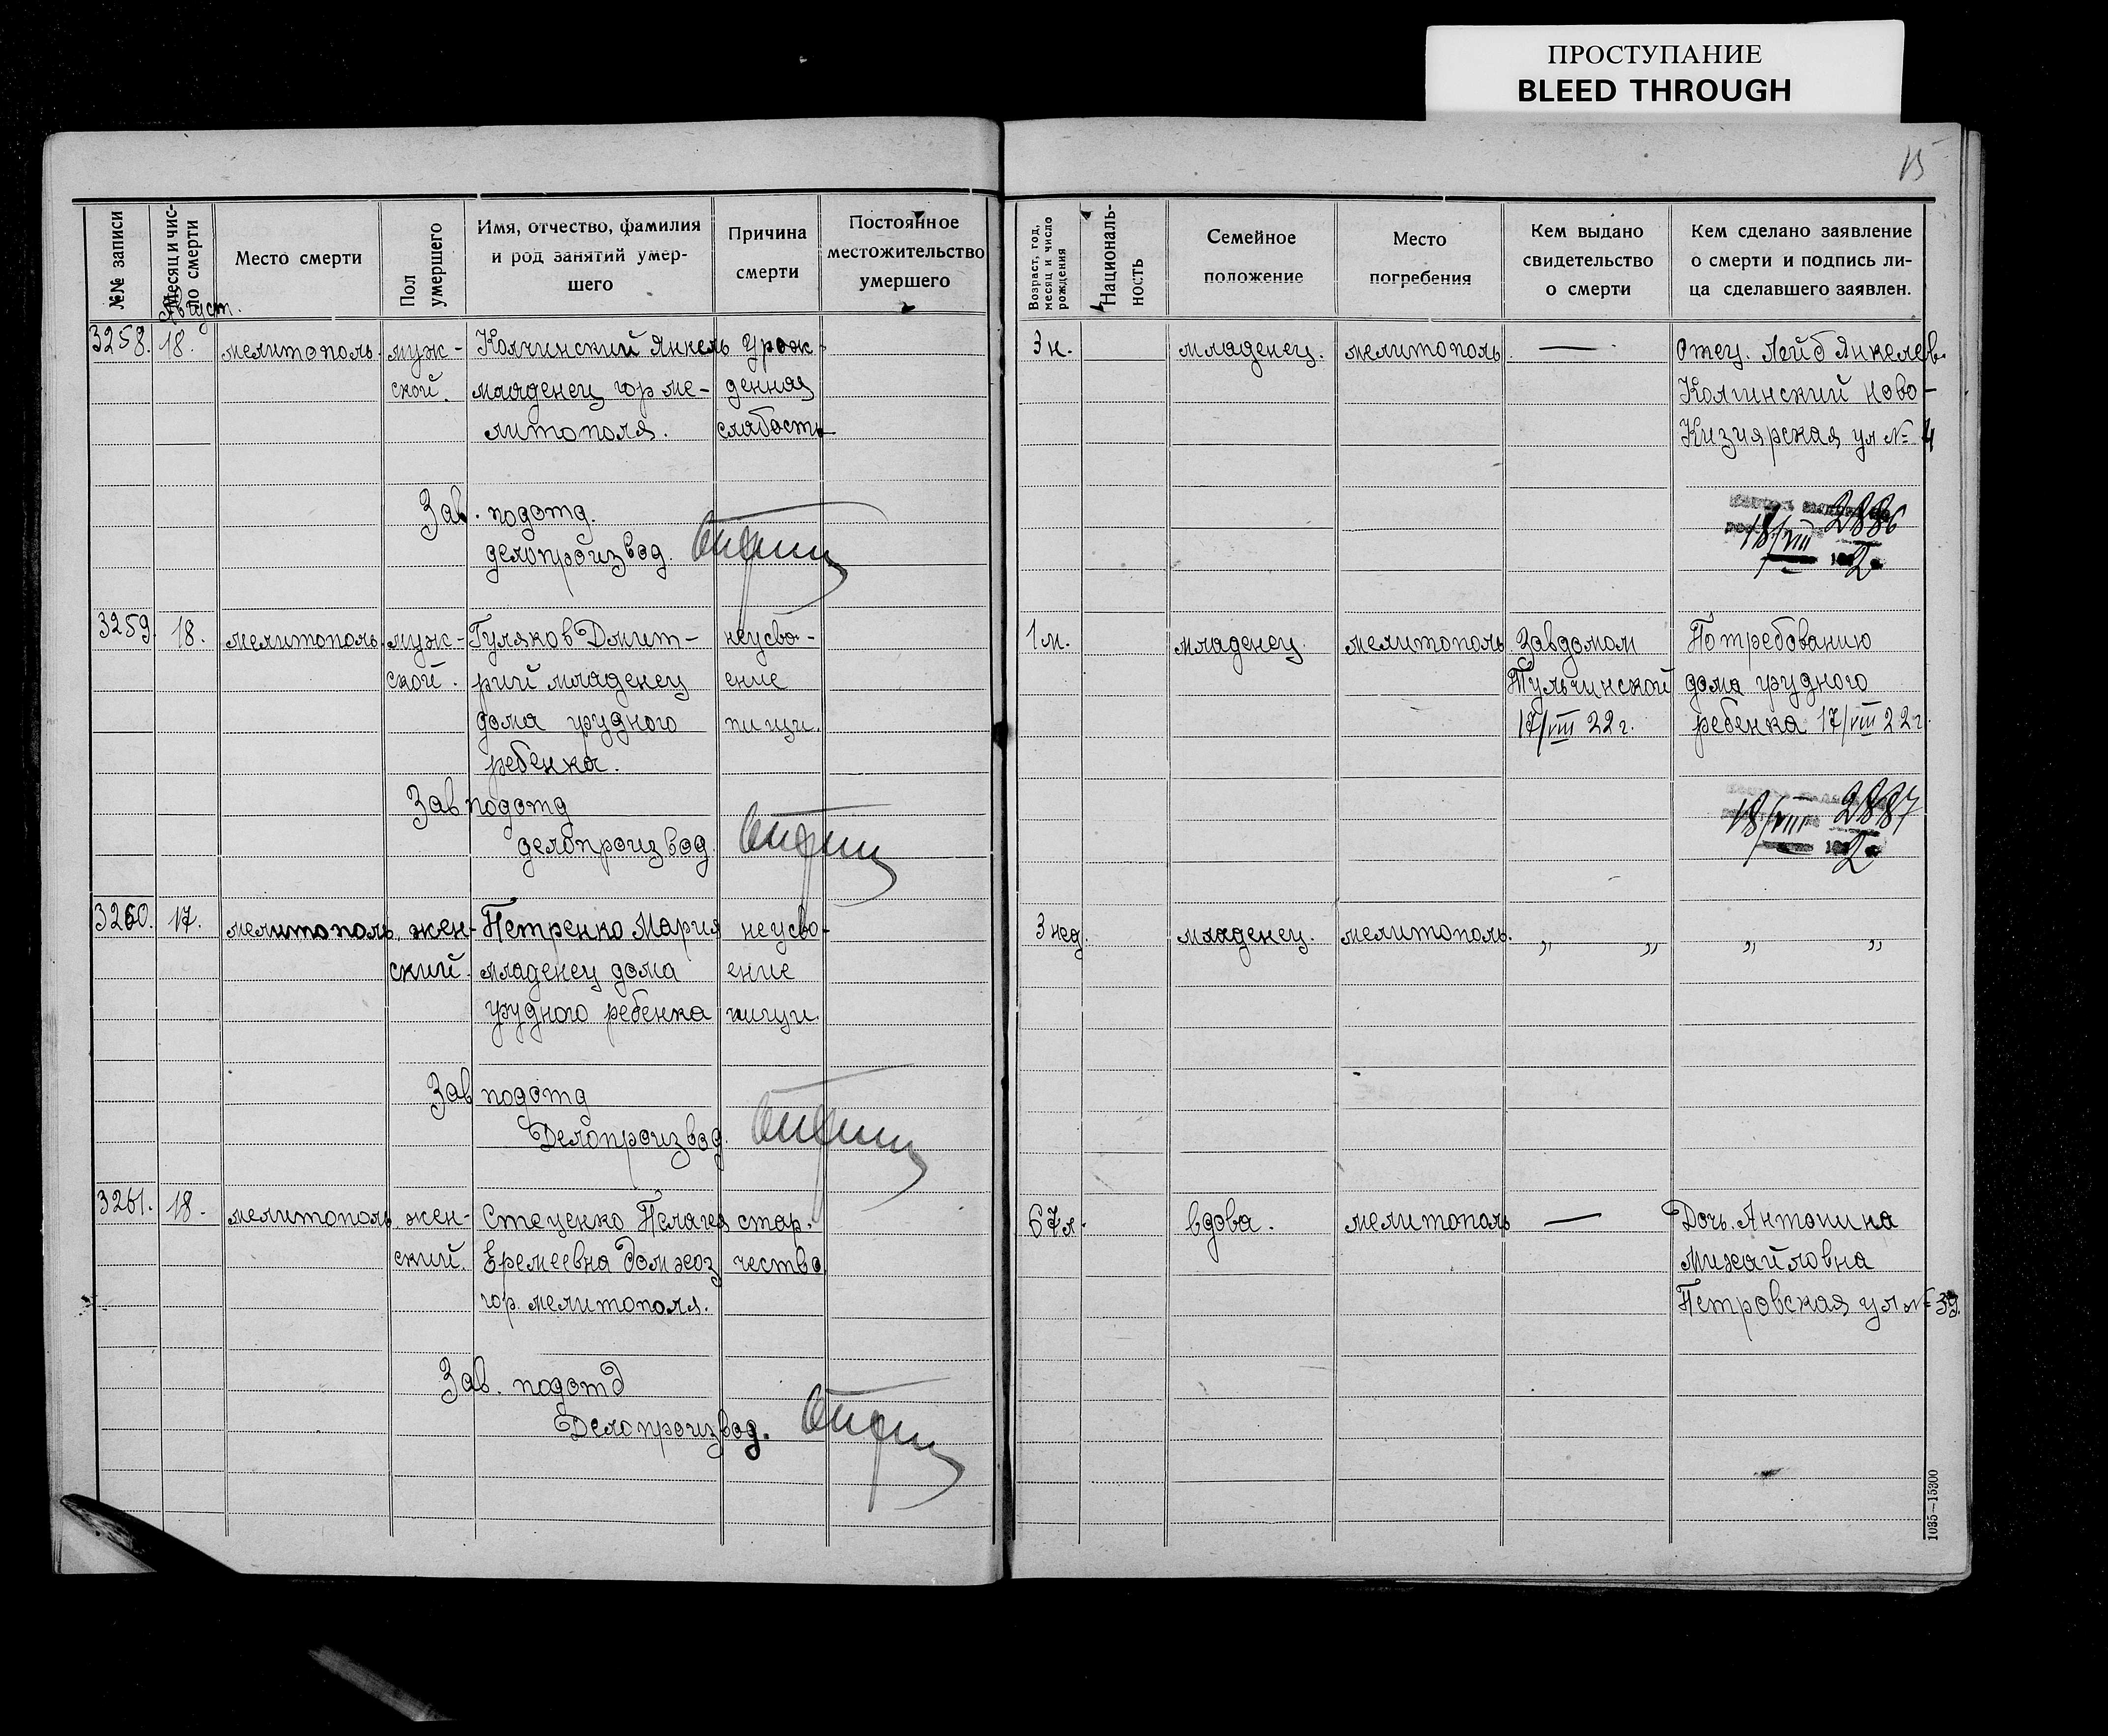 ПРОСТУПАНИЕ
BLEED THROUGH
15
№№ записи
Месяц и чис-
ло смерти
Место смерти
Пол
умершего
Имя, отчество, фамилия
и род занятий умер-
шего
Причина
смерти
Постоянное
местожительство
умершего
Возраст, год,
месяц и число
рождения
Националь-
ность
Семейное
положение
Место
погребения
Кем выдано
свидетельство
о смерти
Кем сделано заявление
о смерти и подпись ли-
ца сделавшего заявлен.
Август.
3258. 18. мелитополь. муж- Колчинский Янкель урож- 3 н. младенец. мелитополь — Отец. Лейб Янкелев.
ской. младенец гор ме- денная Колчинский Ново-
литополя. слабость Кизиярская ул № 4
Зав. подотд. 2886
делопроизвод. 18/VIII 2
3259. 18. мелитополь. муж- Гуляков Дмит- неусво- 1 м. младенец. мелитополь Завдомом По требованию
ской. рий младенец ение Тульчинской дома грудного
дома грудного пищи. 17/VIII 22 г. ребенка 17/VIII 22 г.
ребенка.
Зав подотд 18/VIII 2887
делопроизвод. 2
3260. 17. мелитополь. жен- Петренко Мария неусво- 3 нед. младенец. мелитополь. „ „ „ „
ский. младенец дома ение
грудного ребенка пищи.
Зав подотд
Делопроизвод.
3261. 18. мелитополь. жен- Стеценко Пелагея стар- 67 л. вдова. мелитополь — Дочь. Антонина
ский. Еремеевна домхоз чество. Михайловна
гор. мелитополя. Петровская ул № 39.
Зав. подотд
Делопроизвод.
1035—15300